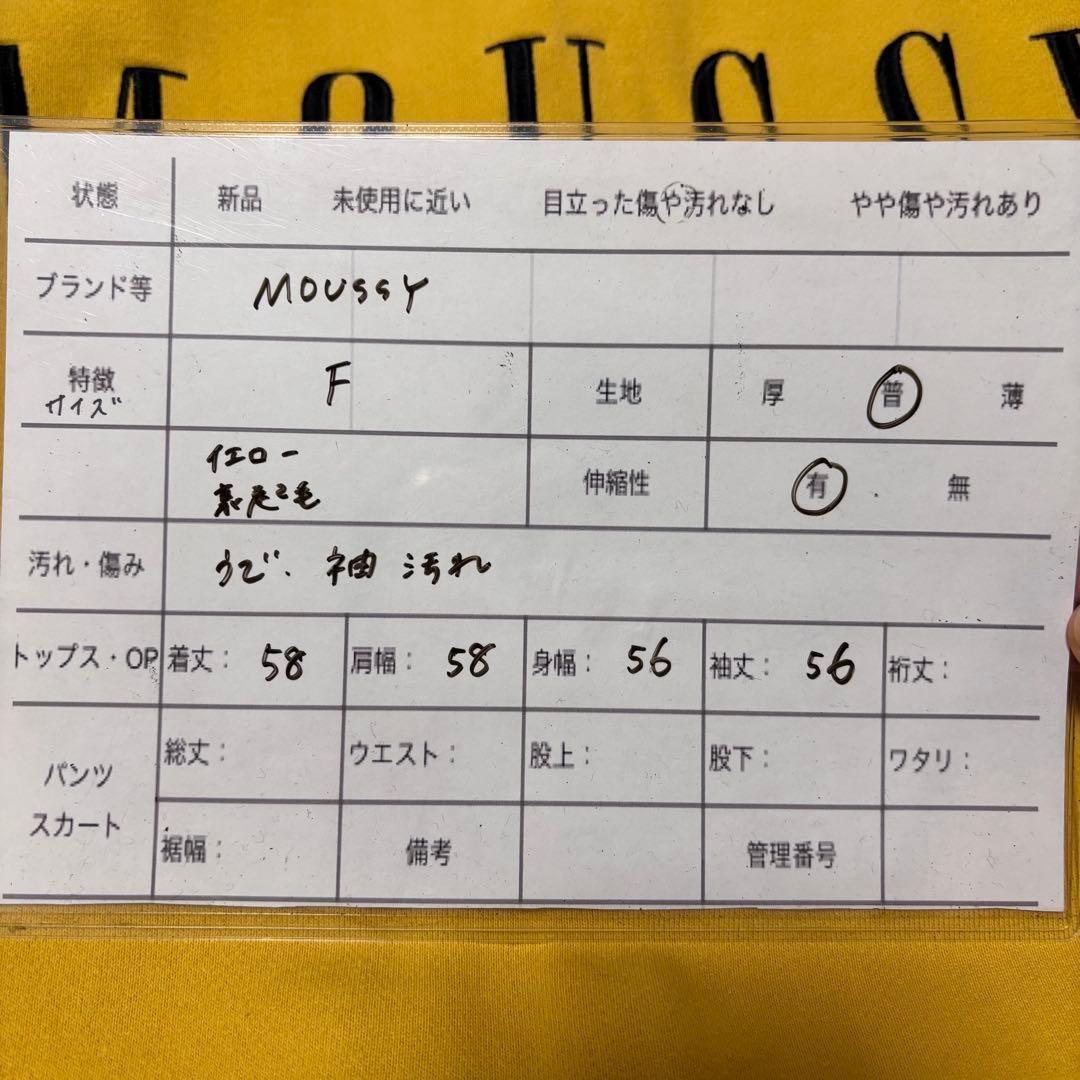 MOUSSY
状態 新品 未使用に近い 目立った傷や汚れなし やや傷や汚れあり
ブランド等 MOUSSY
特徴 サイズ F 生地 厚 普 薄
イエロー 裏起毛 伸縮性 有 無
汚れ・傷み うで、袖 汚れ
トップス・OP 着丈： 58 肩幅： 58 身幅： 56 袖丈： 56 裄丈：
パンツ スカート 総丈： ウエスト： 股上： 股下： ワタリ：
裾幅： 備考 管理番号